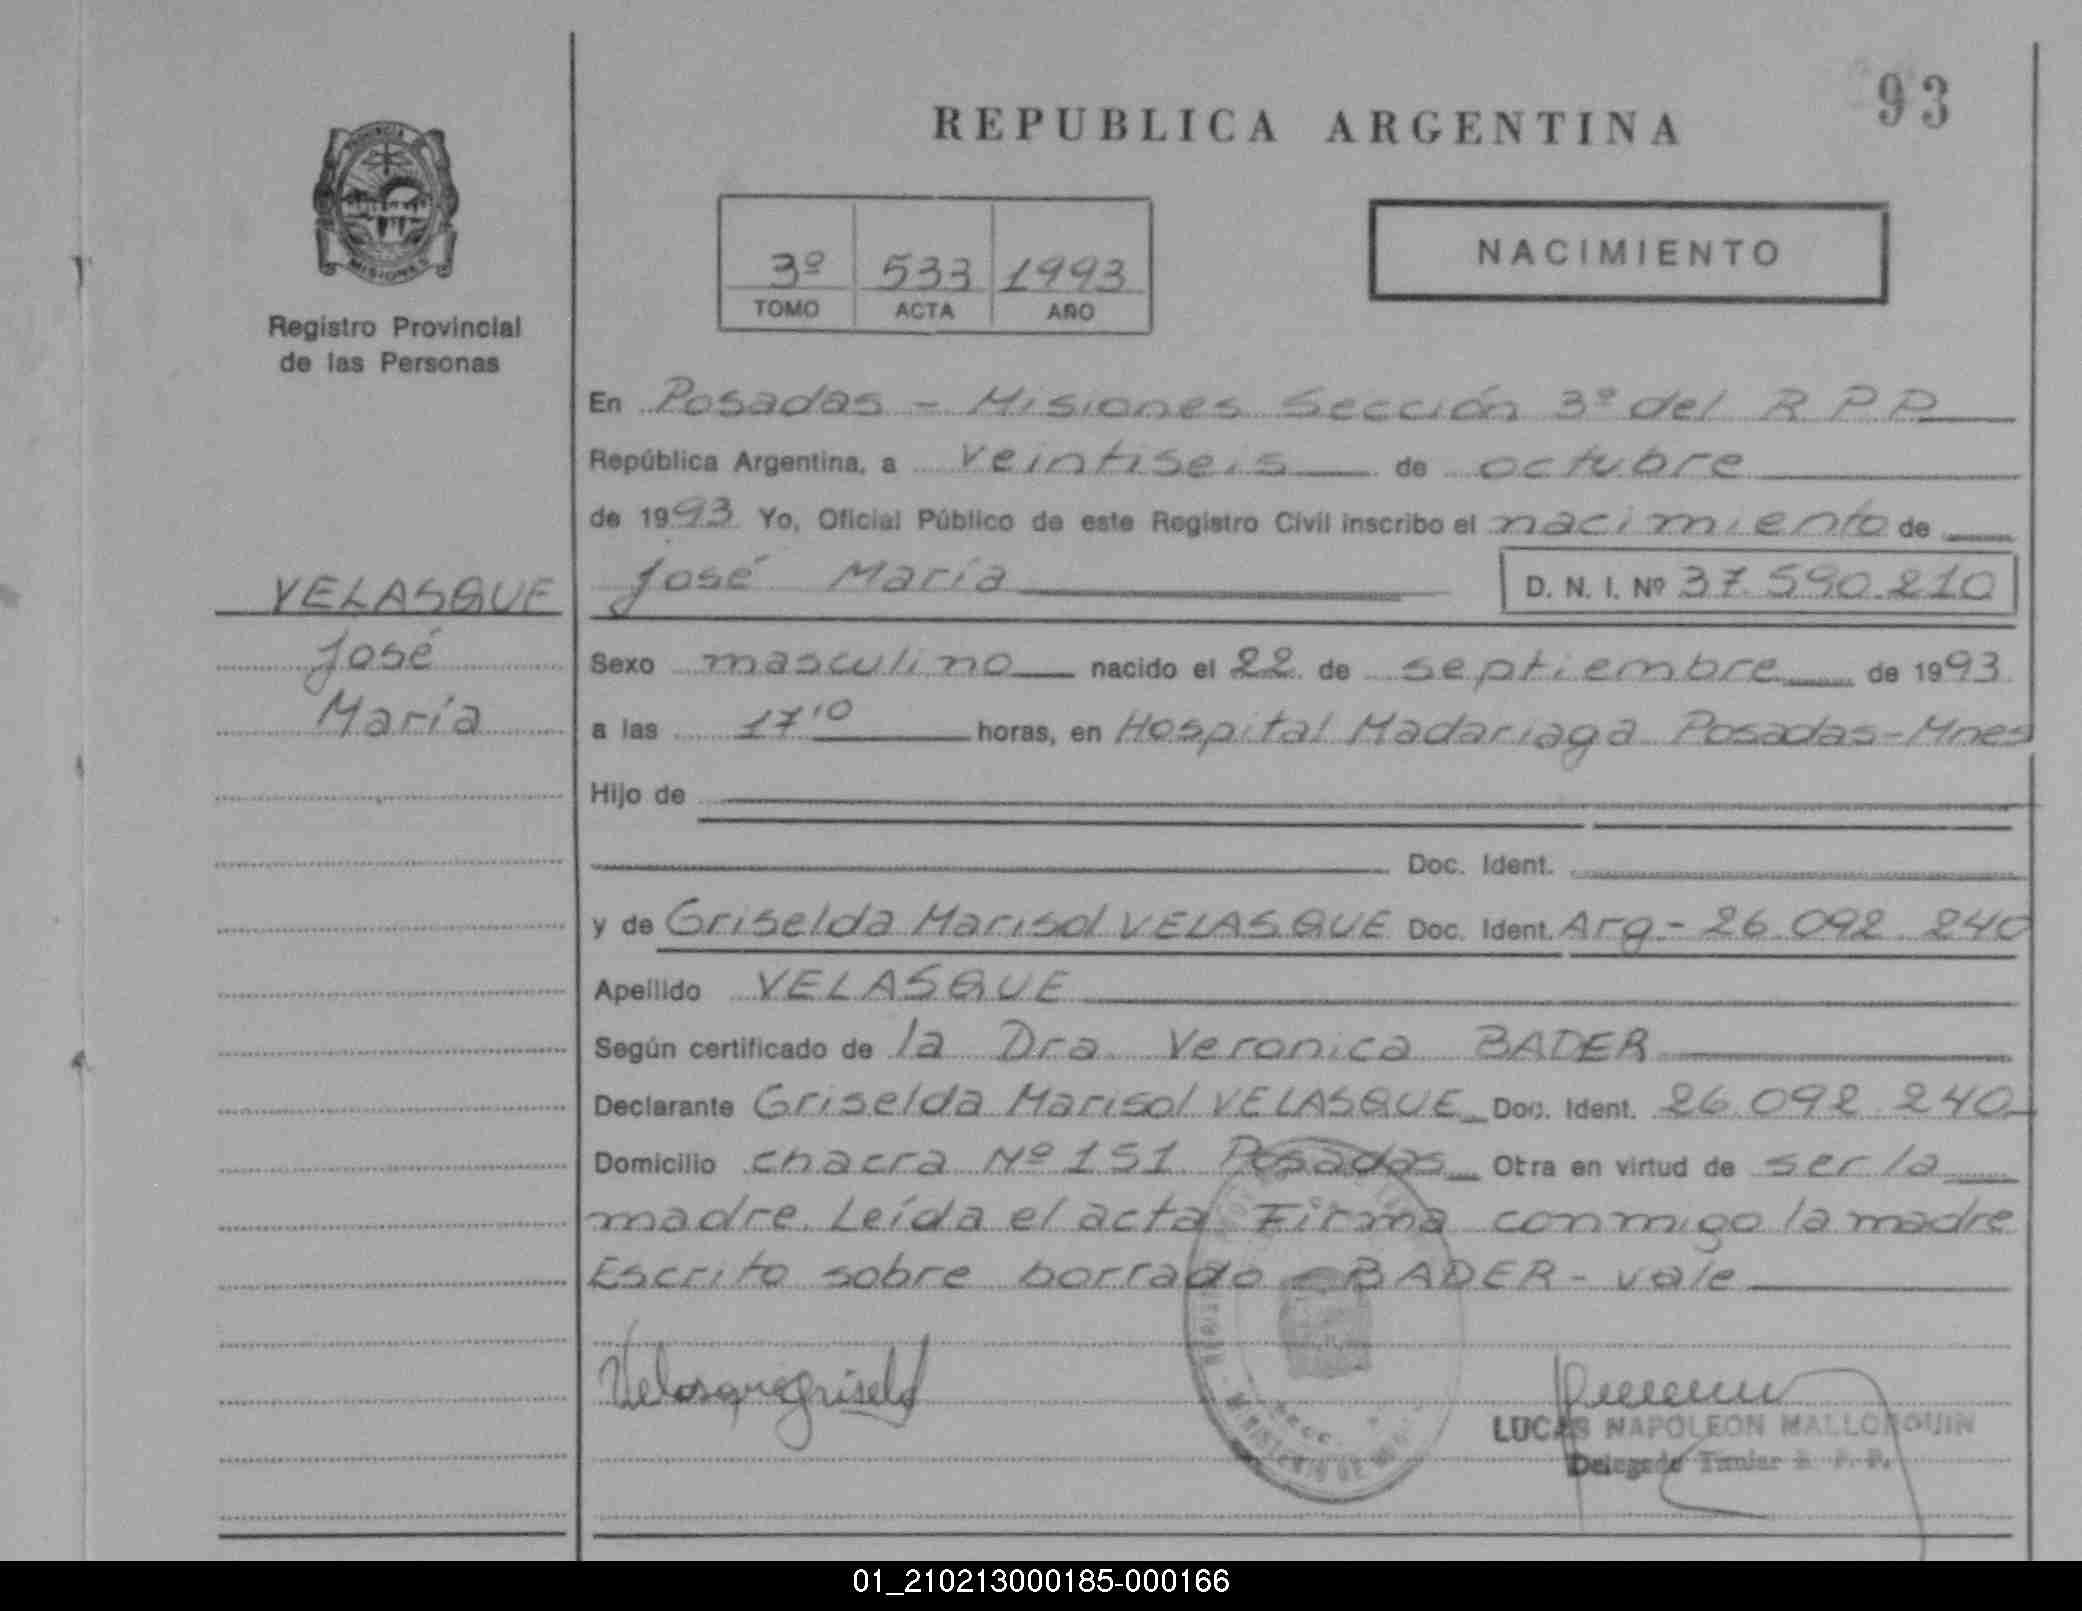 93
REPUBLICA ARGENTINA
3º 533 1993
TOMO ACTA AÑO
NACIMIENTO
PROVINCIA
MISIONES
Registro Provincial
de las Personas
VELASQUE
José
María
En Posadas - Misiones Sección 3º del R P P
República Argentina, a veintiseis de octubre
de 1993 Yo, Oficial Público de este Registro Civil inscribo el nacimiento de
José María D. N. I. Nº 37.590.210
Sexo masculino nacido el 22 de septiembre de 1993
a las 17'10 horas, en Hospital Madariaga Posadas-Mnes
Hijo de
Doc. Ident.
y de Griselda Marisol VELASQUE Doc. Ident. Arg.- 26.092.240
Apellido VELASQUE
Según certificado de la Dra Veronica BADER
Declarante Griselda Marisol VELASQUE Doc. Ident. 26.092.240
Domicilio chacra Nº 151 Posadas Otra en virtud de ser la
madre. Leída el acta Firma conmigo la madre
Escrito sobre borrado - BADER - vale
Velasque griseld
LUCAS NAPOLEON MALLORQUIN
Delegado Titular R. P. P.
MINISTERIO DE
01_210213000185-000166